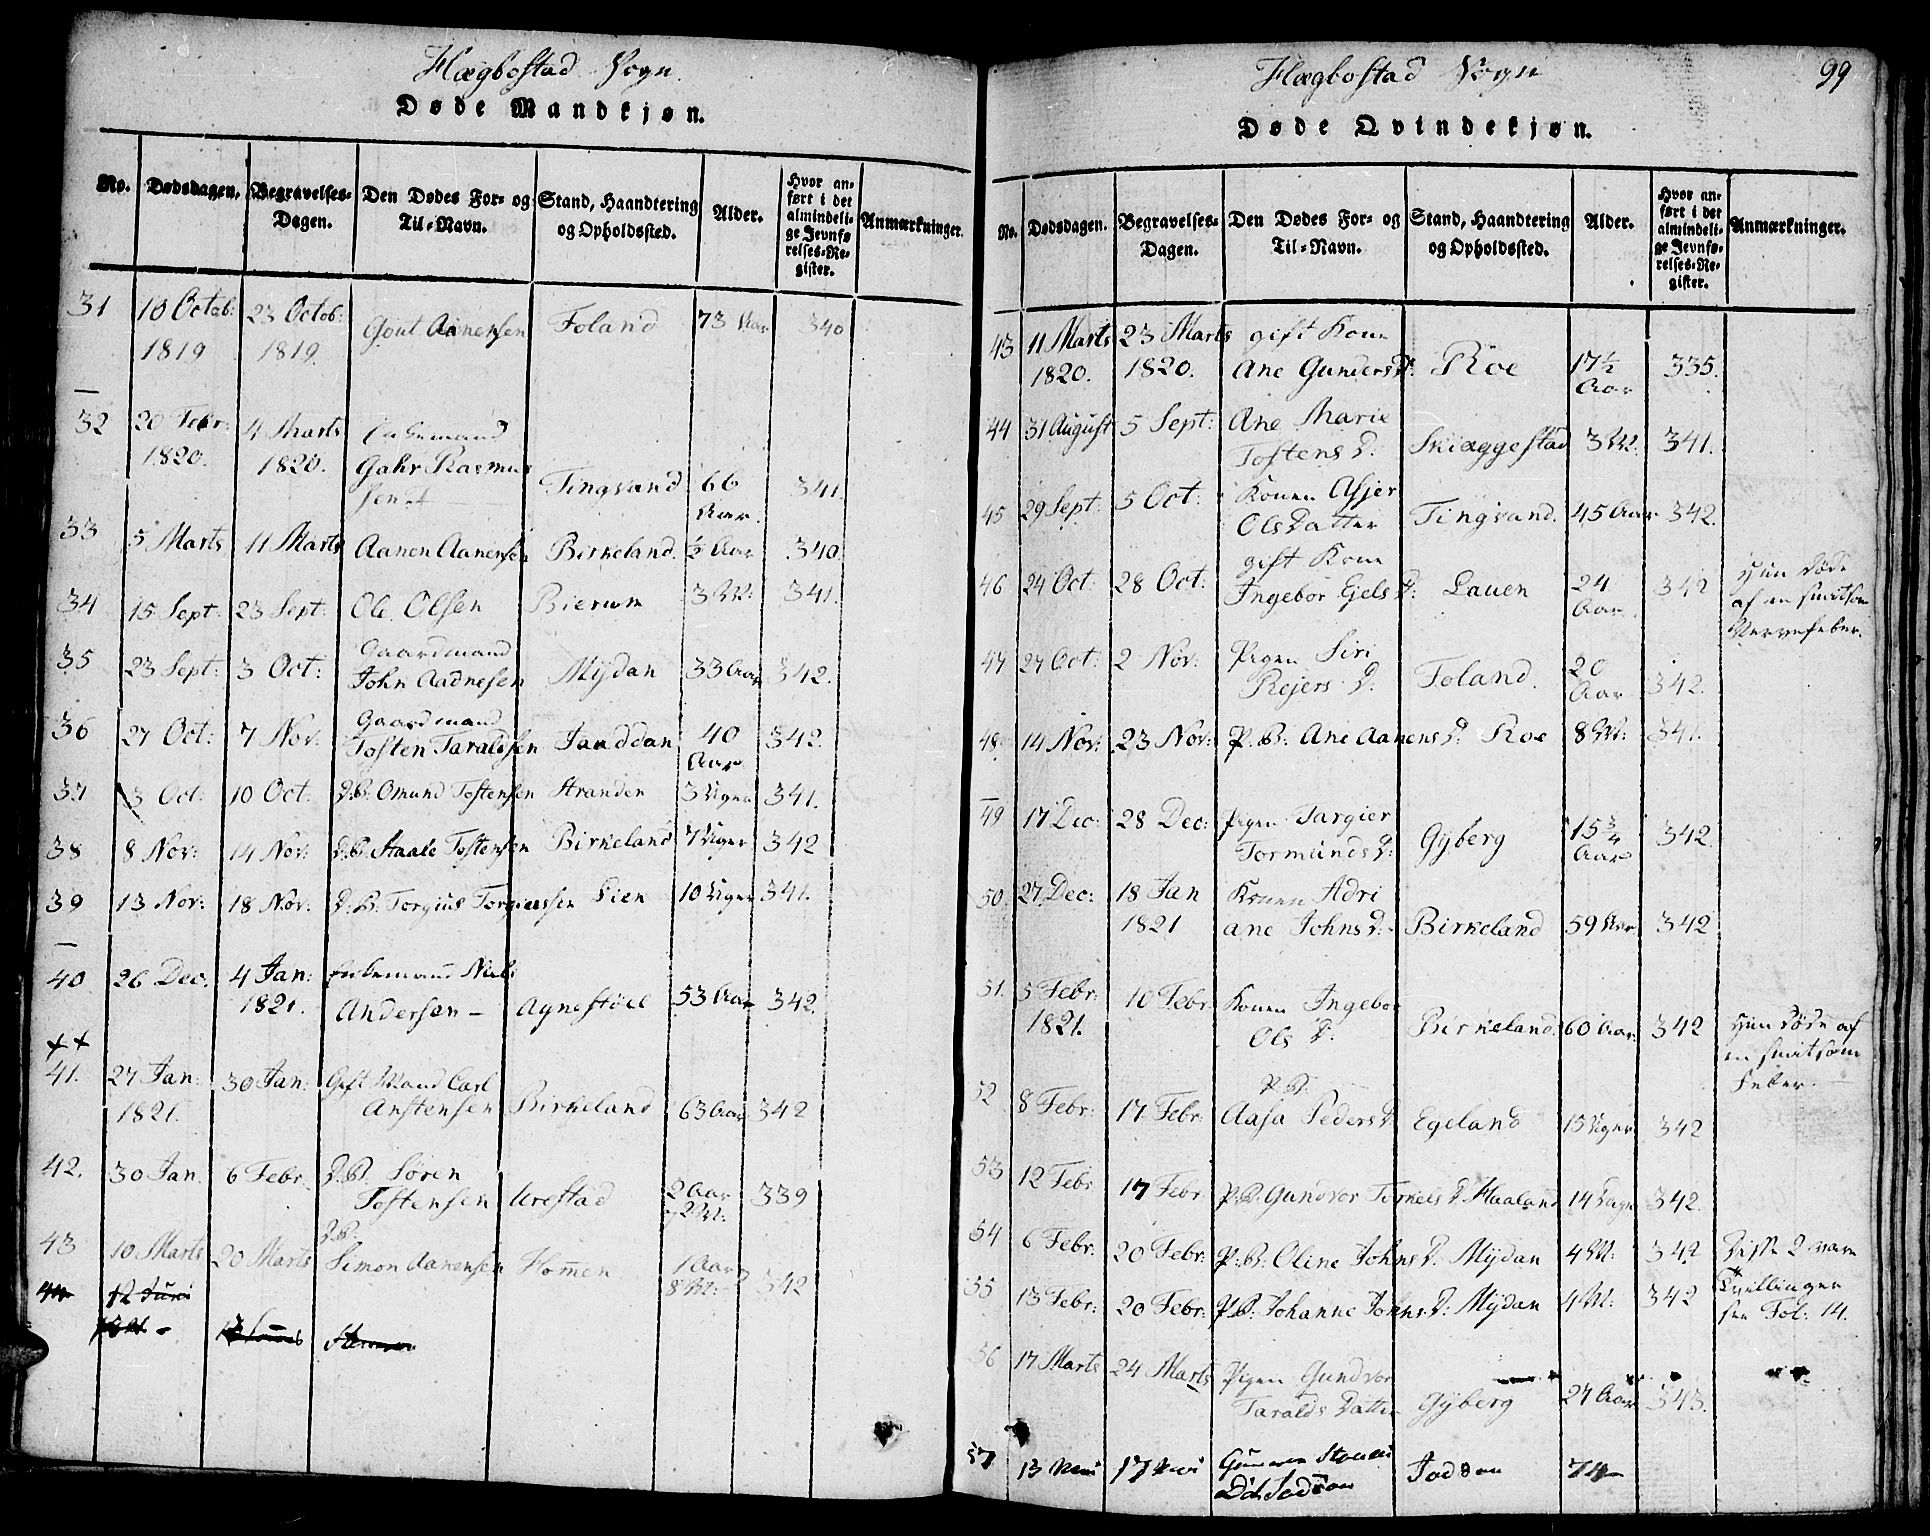 Hægbostad Sogn.
Døde Mandkjøn.
No. Dødsdagen. Begravelses-Dagen. Den Dødes For- og Til-Navn. Stand, Haandtering og Opholdssted. Alder. Hvor anført i det almindelige Jevnførelses-Register. Anmærkninger.
31 10 Octob: 1819 23 Octob: 1819. Gout Aanensen Foland 73 Aar 340
32 20 Febr: 1820. 4 Marts 1820. Gahr Rasmussen Tingvand 66 Aar. 341.
33 5 Marts 11 Marts Aanen Aanensen Birkeland. ½ Aar 340.
34 15 Sept: 23 Sept: Ole Olsen Bierum 3 M: 341.
35 23 Sept: 3 Oct: Gaardmand John Aadnesen Mÿdan 33 Aar 342.
36 27 Oct: 7 Nov: Gaardmand Tosten Taraldsen Janddan 40 Aar 342.
37 3 Oct: 10 Oct: D.B. Omund Tostensen Stranden 3 Uger 341.
38 8 Nov: 14 Nov: D.B. Staale Tostensen Birkeland 7 Uger 342
39 13 Nov: 18 Nov: D.B. Torgius Torgiussen Lien 10 Uger 341.
40 26 Dec: 4 Jan: 1821. Enkemand Niels Andersen - Agnestöel 53 Aar 342.
41. 27 Jan: 1821. 30 Jan: Gift Mand Carl Anstensen Birkeland 63 Aar 342
42. 30 Jan. 6 Febr. D.B. Sören Tostensen Urestad 2 Aar 2 M: 339
43 10 Marts 20 Marts D.B. Simon Aanensen Hommen 1 Aar 8 M: 342
44 12 Juni
Hægbostad Sogn
99
Døde Qvindekjøn.
No. Dødsdagen. Begravelses-Dagen. Den Dødes For- og Til-Navn. Stand, Haandtering og Opholdssted. Alder. Hvor anført i det almindelige Jevnførelses-Register. Anmærkninger.
43 11 Marts 1820. 23 Marts 1820. gift Kone Ane Gunders D: Roe 17½ Aar 335.
44 31 August 5 Sept: Ane Marie Tostens D: Skiæggestad 3 M: 341.
45 29 Sept: 5 Oct: Konen Asjer Olsdatter Tingvand. 45 Aar 342.
46 24 Oct: 28 Oct: gift Kone Ingebor Gjels D: Lauen 24 Aar 342 Hun døde af en smitsom Nervefeber.
47 27 Oct: 2 Nov: Pigen Siri Rejers D: Foland. 20 Aar 342.
48 14 Nov: 23 Nov: P.B: Ane Aanens D: Roe 8 M: 341.
49 17 Dec: 28 Dec: Pigen Targier Tormunds D: Gÿberg 15¾ Aar 342.
50. 27 Dec: 18 Jan 1821 Konen Adriane Johns D: Birkeland 59 Aar 342
51. 5 Febr: 1821. 10 Febr Konen Ingebor Ols D. Birkeland. 60 Aar. 342 Hun døde af en smitsom Feber.
52 8 Febr: 17 Febr: P.B. Aasa Peders D. Egeland 15 Uger 342
53 12 Febr 17 Febr P.B. Gundvor Torkels D. Haaland 14 Dage 342.
54 6 Febr: 20 Febr: P.B: Oline Johns D. Mÿdan 4 M: 342 Disse 2 vare Tvillinger see Fol: 14.
55 13 Febr: 20 Febr: P.B. Johanne Johns D: Mÿdan 4 M: 342
56 17 Marts 24 Marts Pigen Gundvor Taralds Datter Gÿberg 27 Aar 343.
57 13 17 74